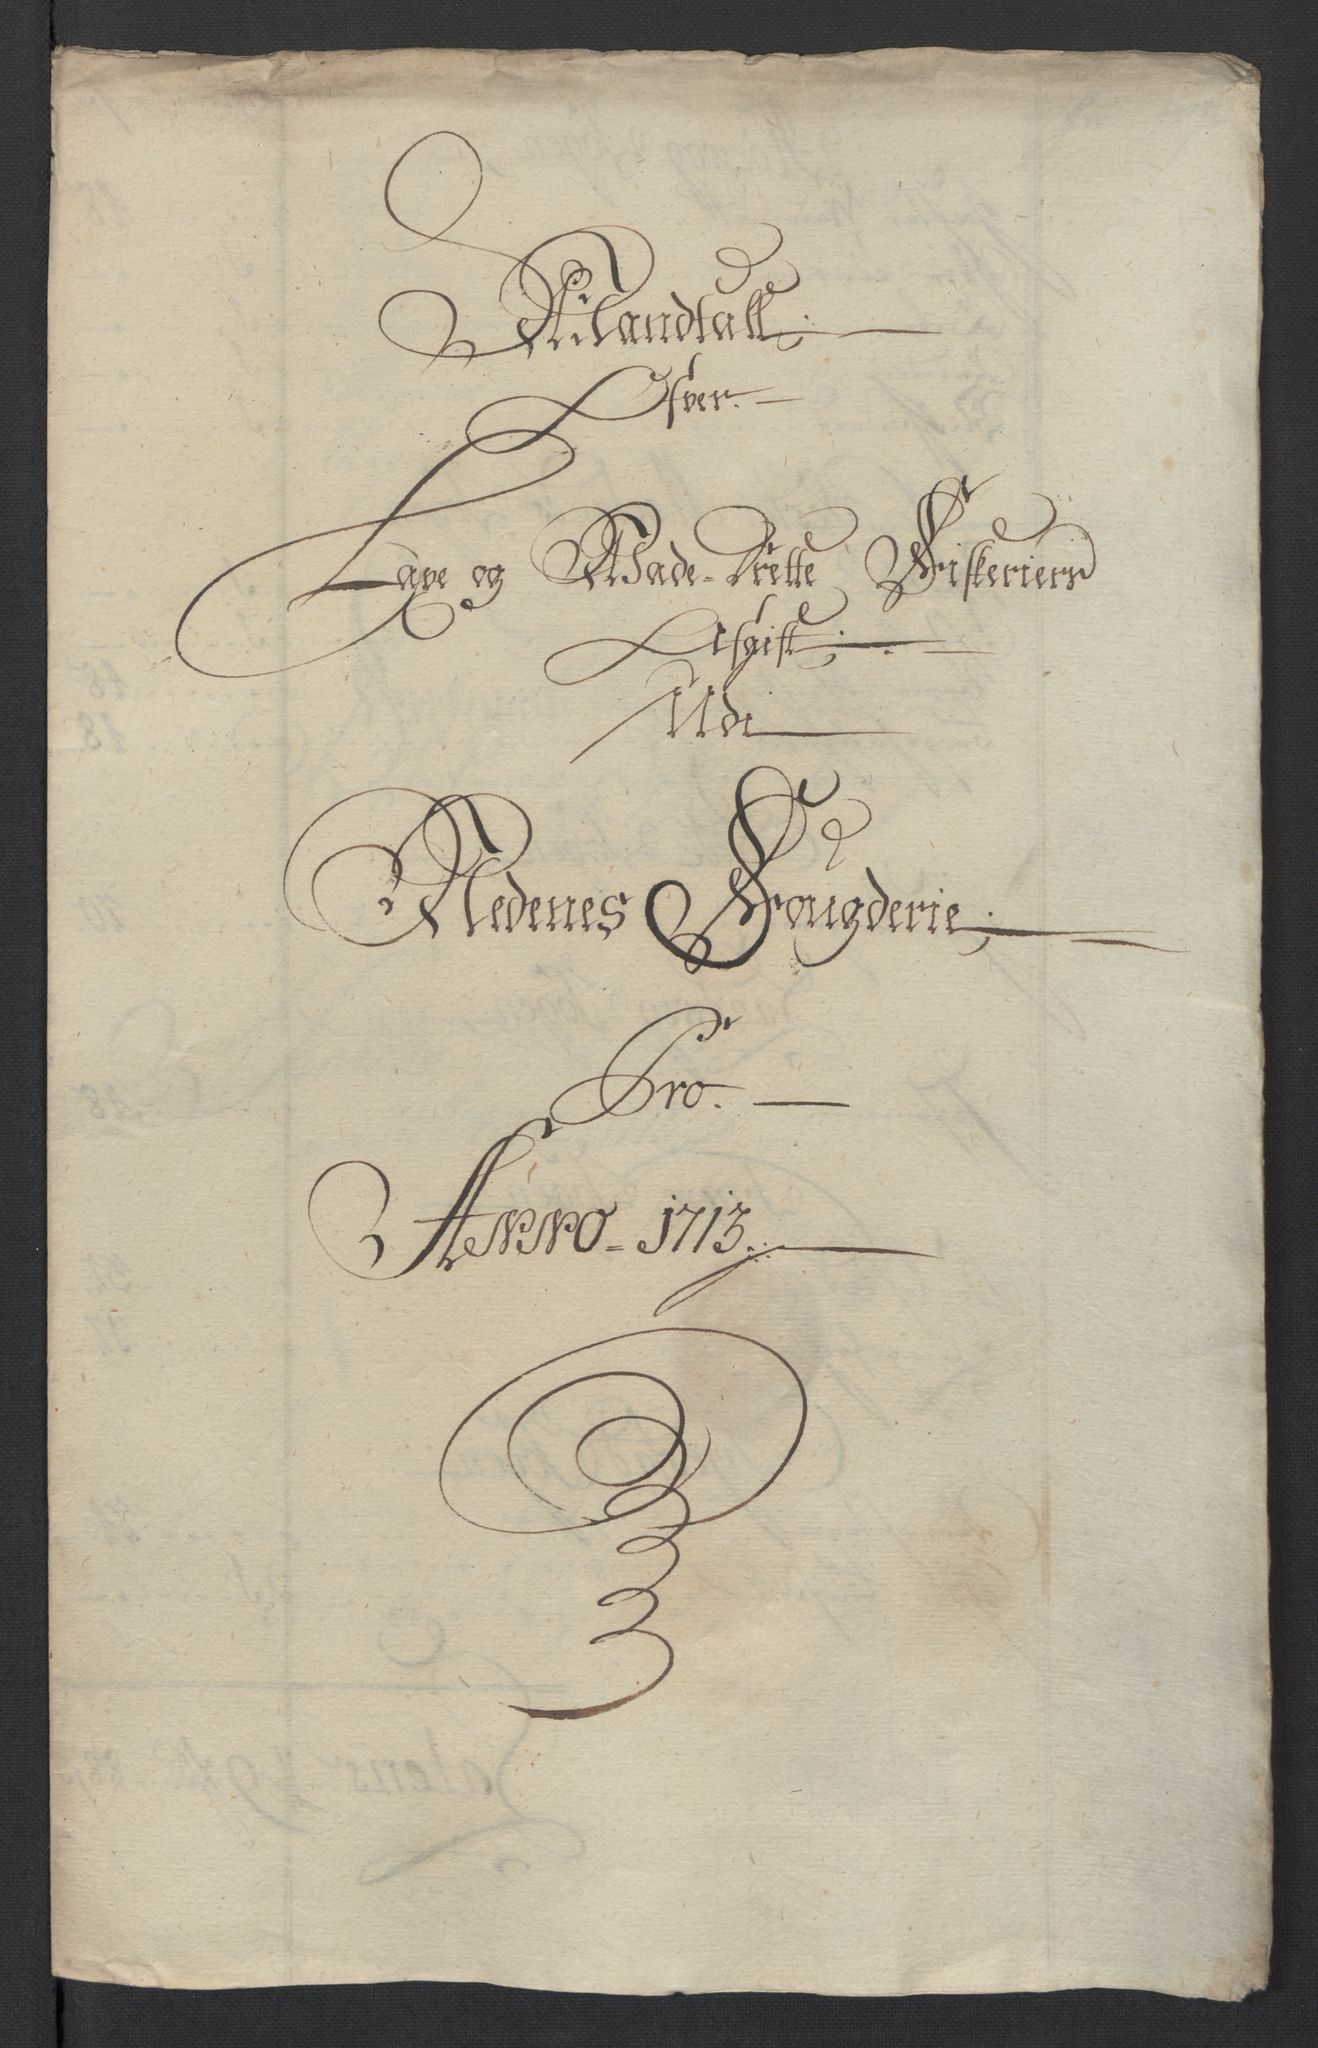 Mandtall
Ofver
Laxe og Wade-Drette Fiskeriers
Afgift
Udi
Nedenes Fougderie
Pro
Anno 1713